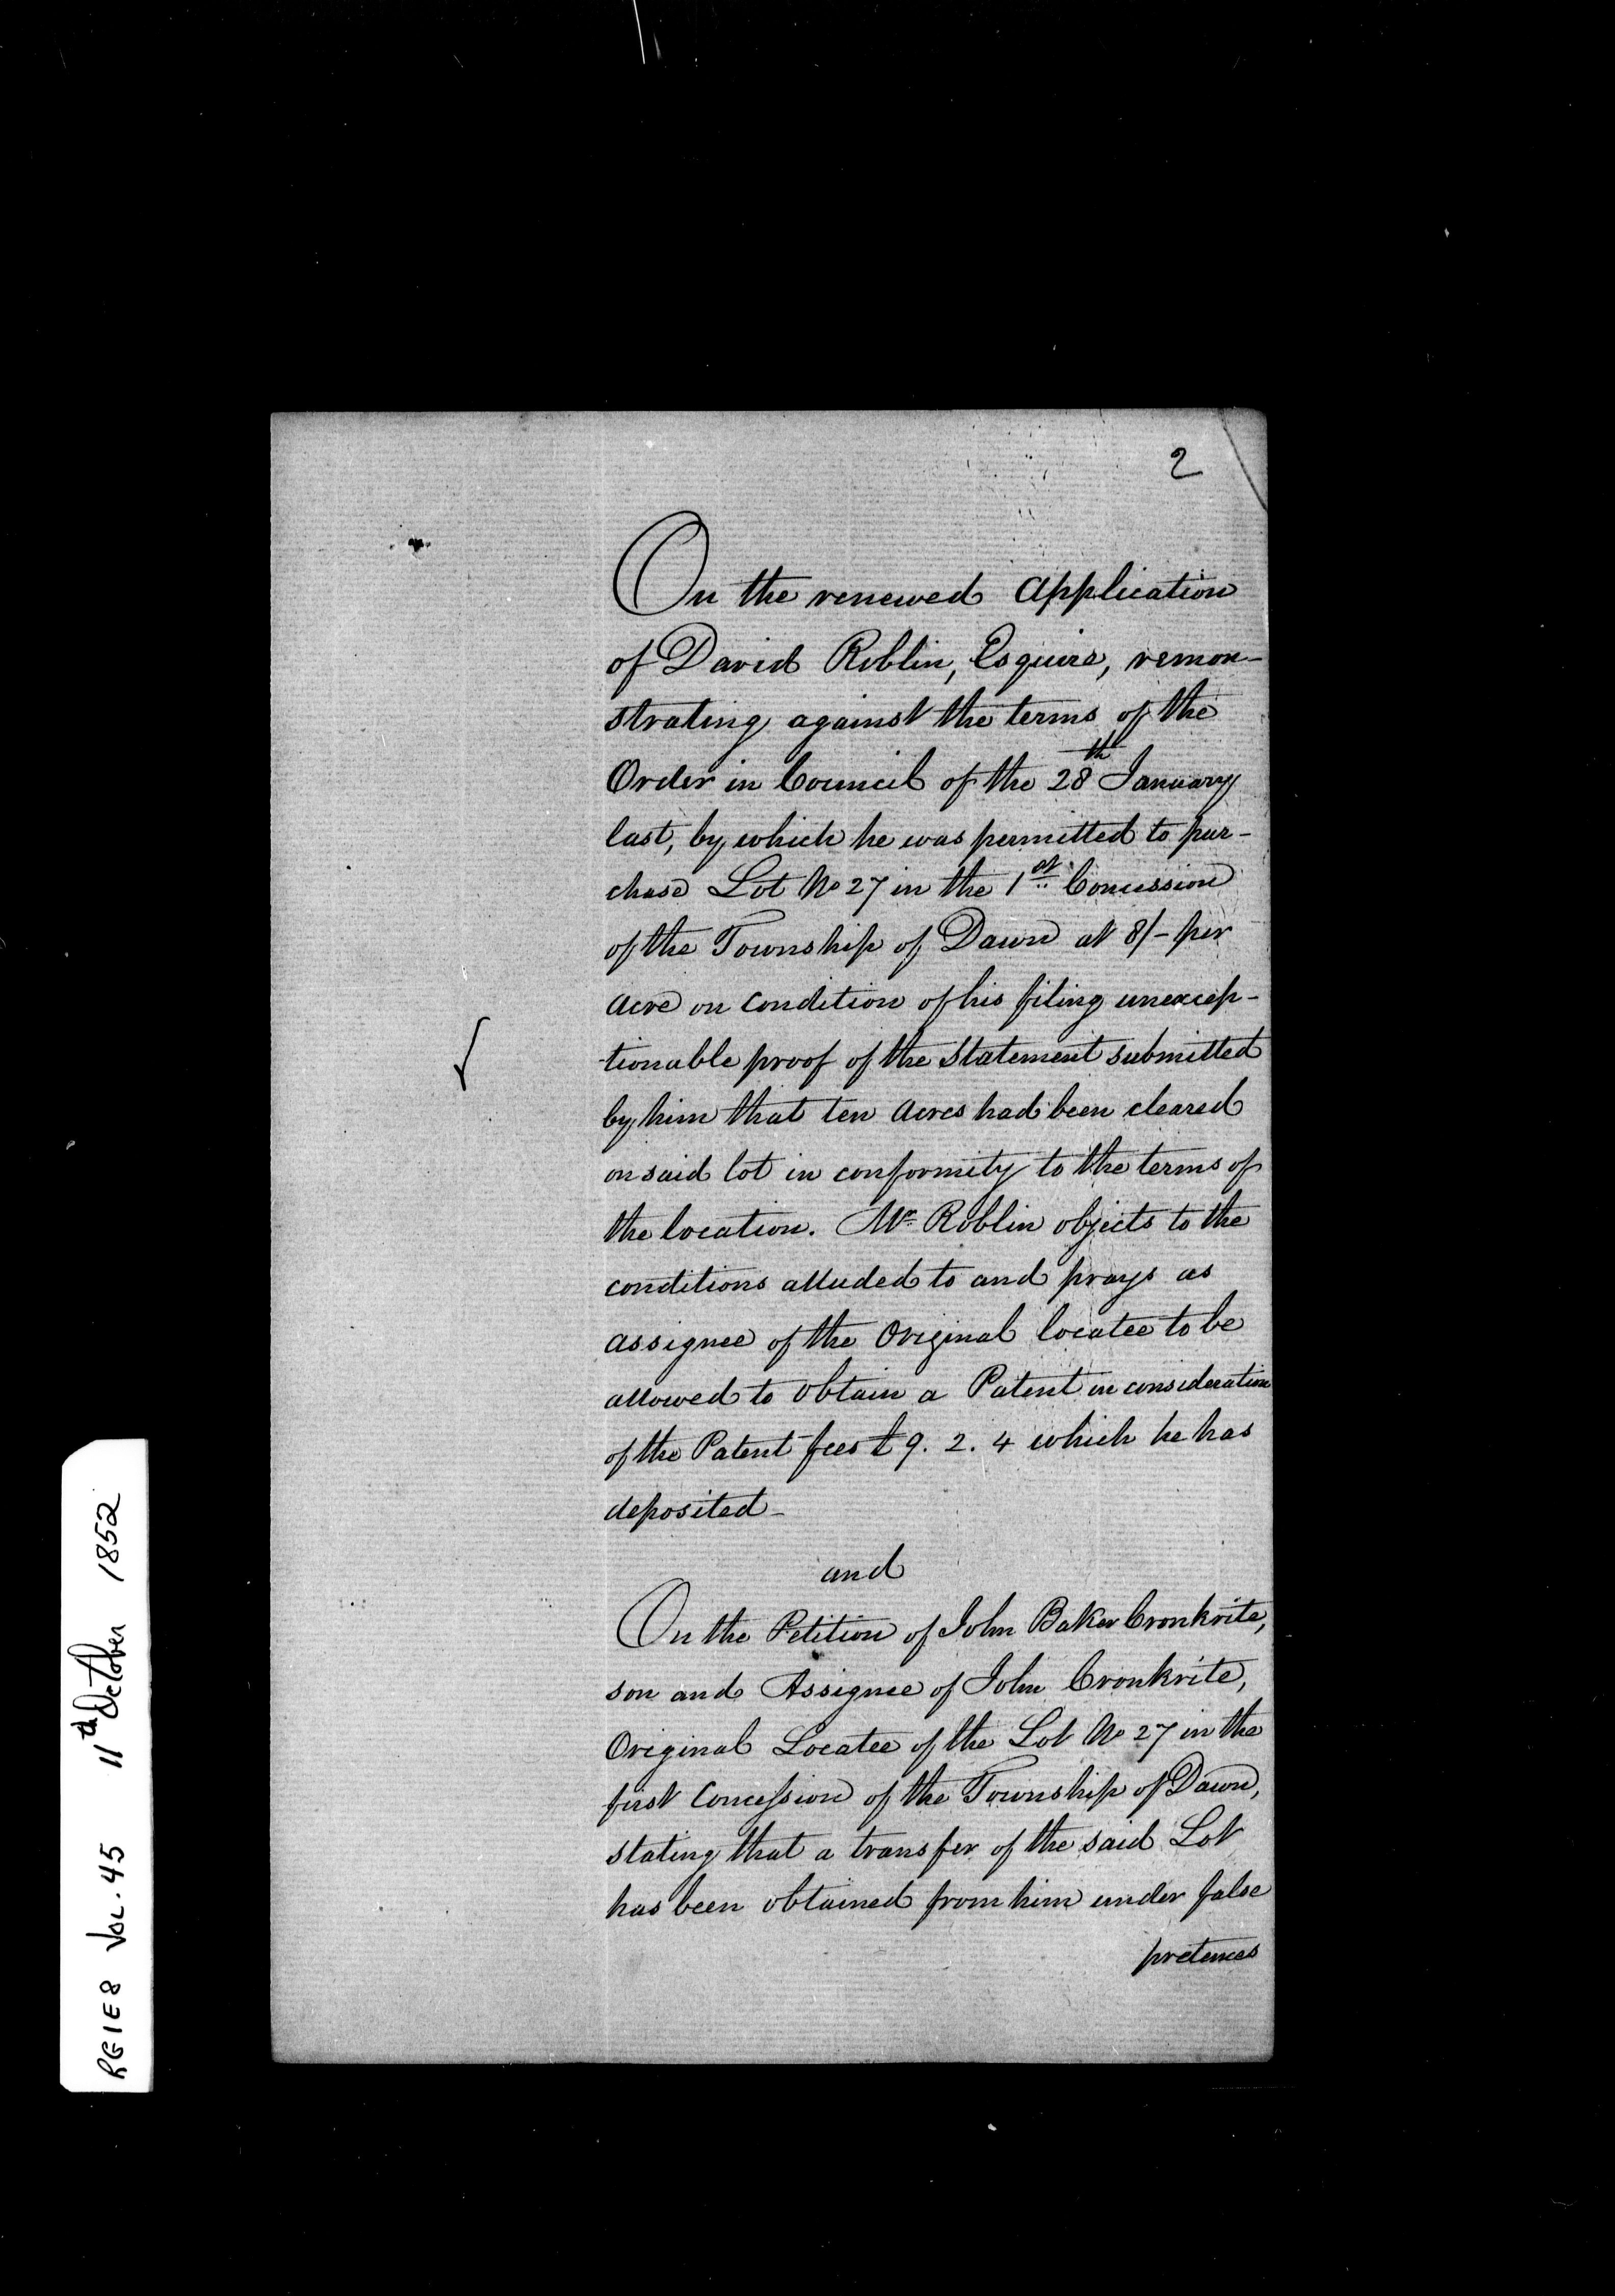 2
On the renewed Application
of David Roblin, Esquire, remon-
strating against the terms of the
Order in Council of the 28th January
last, by which he was permitted to pur-
chase Lot No 27 in the 1st Concession
of the Township of Dawn at 8/- per
Acre on condition of his filing unexcep-
tionable proof of the Statement submitted
by him that ten Acres had been cleared
on said lot in conformity to the terms of
the location. Mr. Roblin objects to the
conditions alluded to and prays as
assignee of the Original locatee to be
allowed to obtain a Patent in consideration
of the Patent fees £9. 2. 4 which he has
deposited-
and
On the Petition of John Baker Cronkrite,
son and Assignee of John Cronkrite,
Original Locatee of the Lot No 27 in the
first Concession of the Township of Dawn,
stating that a transfer of the said Lot
has been obtained from him under false
pretences
RG1E8 Vol. 45 11th October 1852